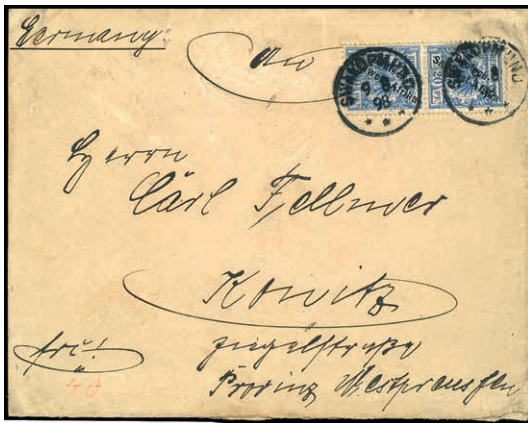 Germany
an
SWAKOPMUND
9 8
98
20 PF.
Herrn
Carl Fellmer
Konitz
Ziegelstraße
frc!
Provinz Westpreussen
40